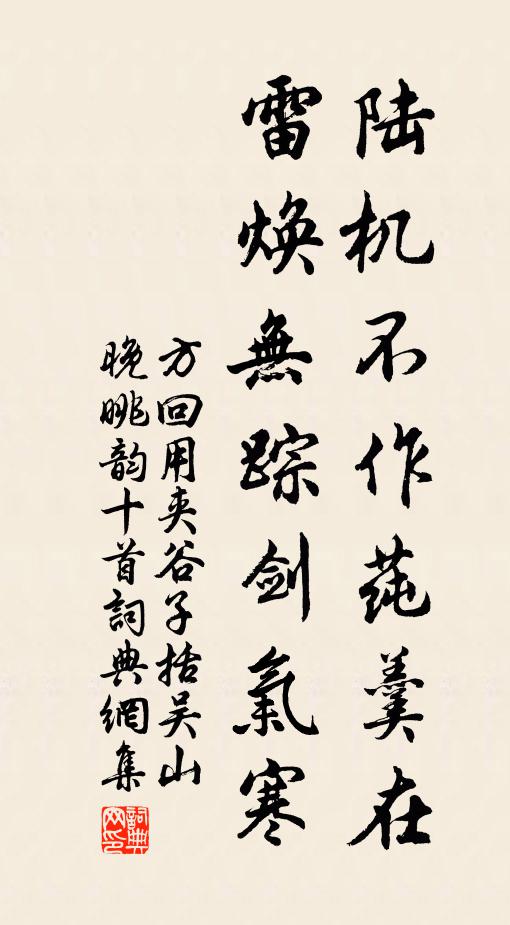 陆机不作莼羹在
雷焕無踪剑氣寒
方回用夹谷子括吴山
晚眺韵十首詞典網集
詞典网印